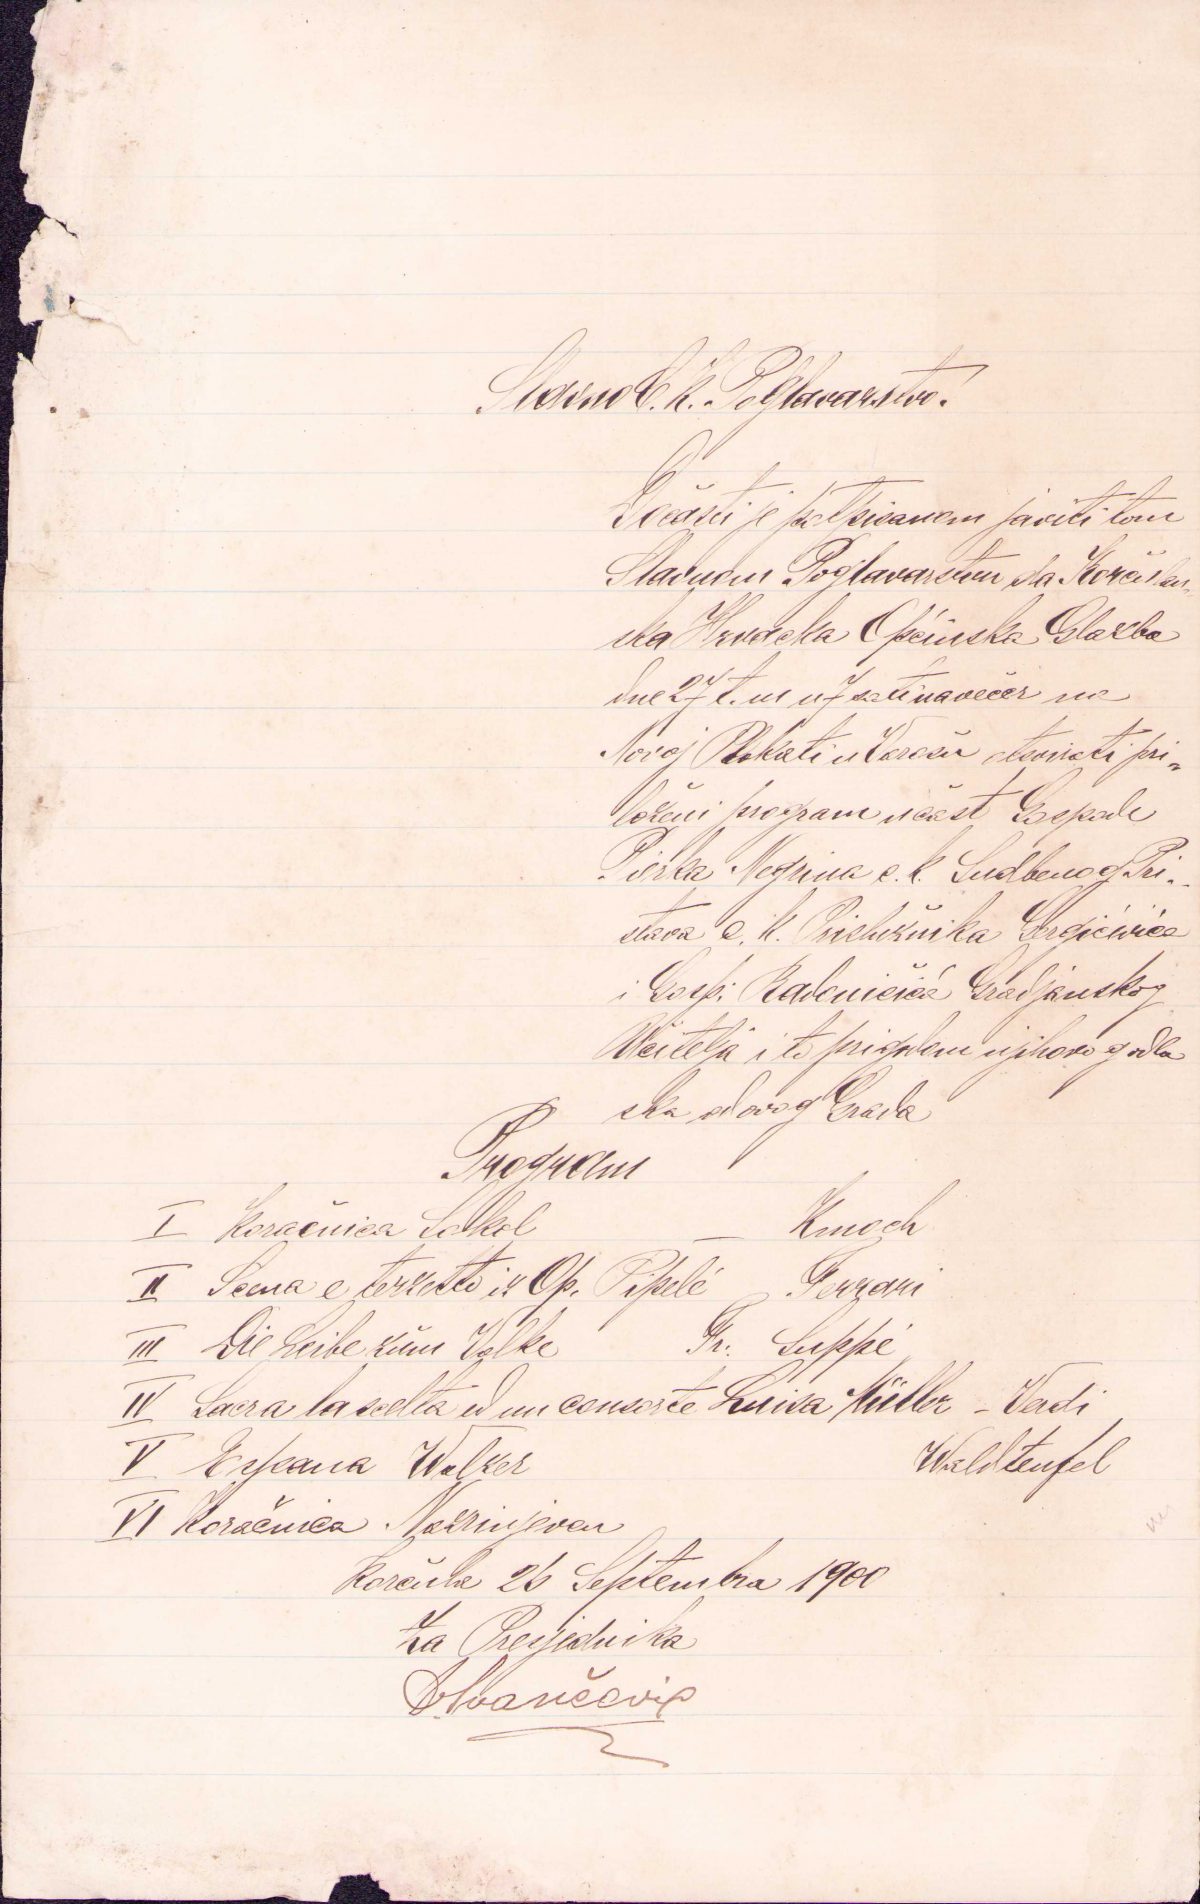 Slavno C. K. Poglavarstvo!
Počasti je potpisanom javiti tom
Slavnom Poglavarstvu da Korčulan-
ska Hrvacka Općinska Glazba
dne 27 t. m u 7 sati navečer na
Novoj Obali u Varošu odsvirati pri=
loženi program u čast Gospode
Pierka Negrina c. k. Sudbenog Pri-
stava c. K. Prislužnika Gergićevića
i Gosp: Radoničića Gradjanskog
Učitelja i to prigodom njihovog odla
ska od ovog Grada
Program
I Koračnica Sokol — Kmoch
II Scena e terzetto iz Op. Pipelé Ferrari
III Die Leibe zum Volke Fr. Suppé
IV Sacra la scelta ed un consorte Luisa Müller – Verdi
V Espana Walzer Waldteufel
VI Koračnica
Korčula 26 Septembra 1900
Za Presjednika
Ivančević